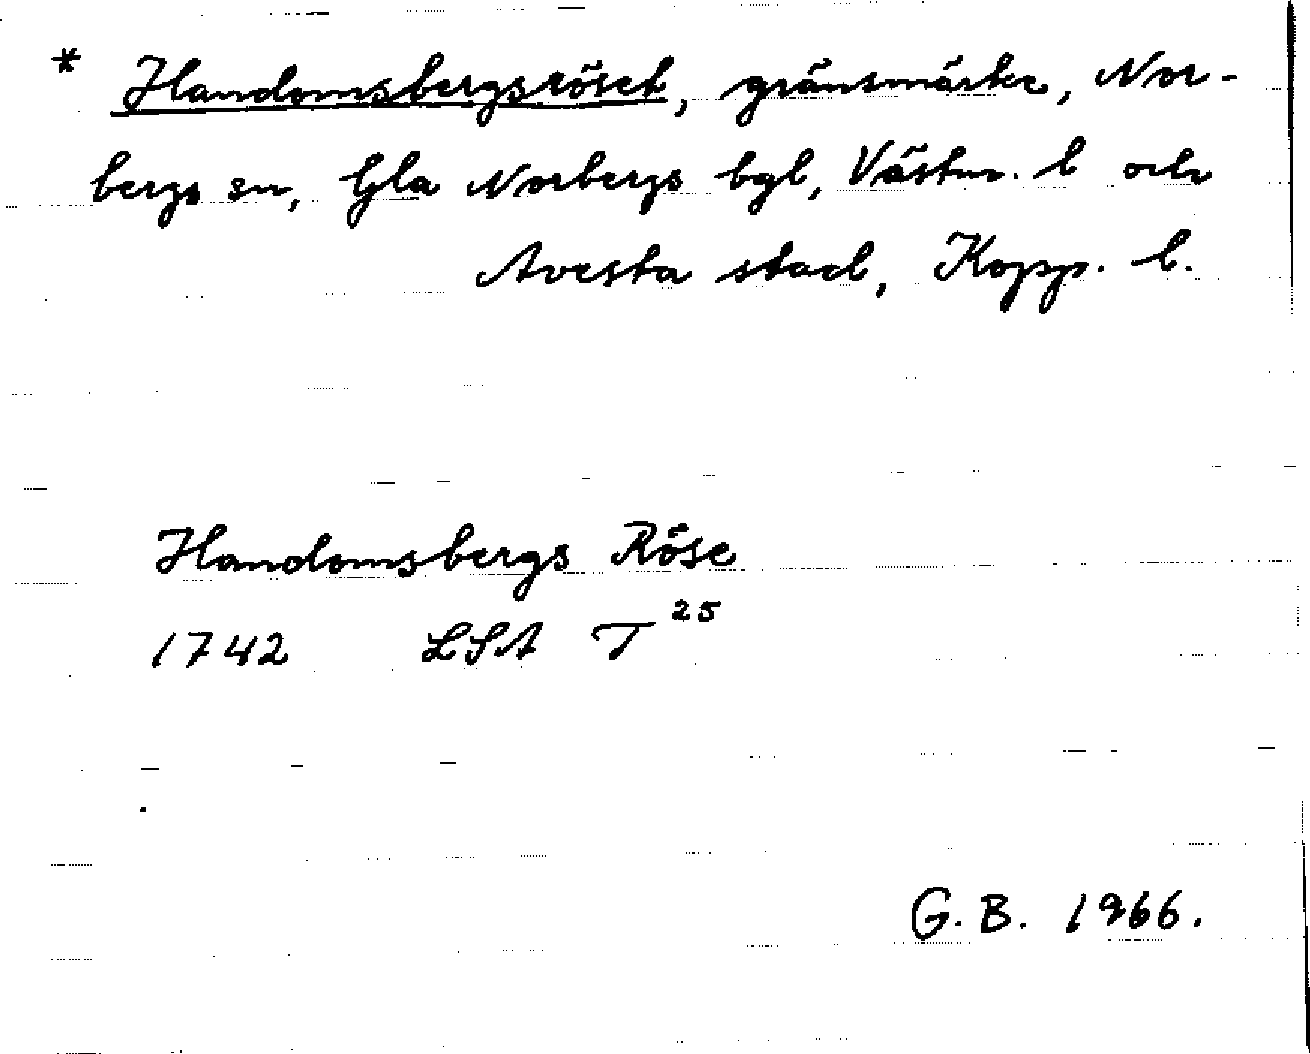 * Handomsbergsröset, gränsmärke, Nor-
bergs sn, Gla Norbergs bgl, Västm. l och
Avesta stad, Kopp. l.
Handomsbergs Röse
1742 LSA T 25
G. B. 1966.